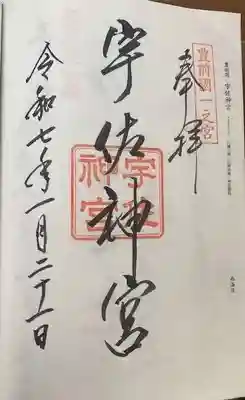 豊前國一之宮
奉拝
宇佐神宮
宇佐
神宮
令和七年一月二十一日